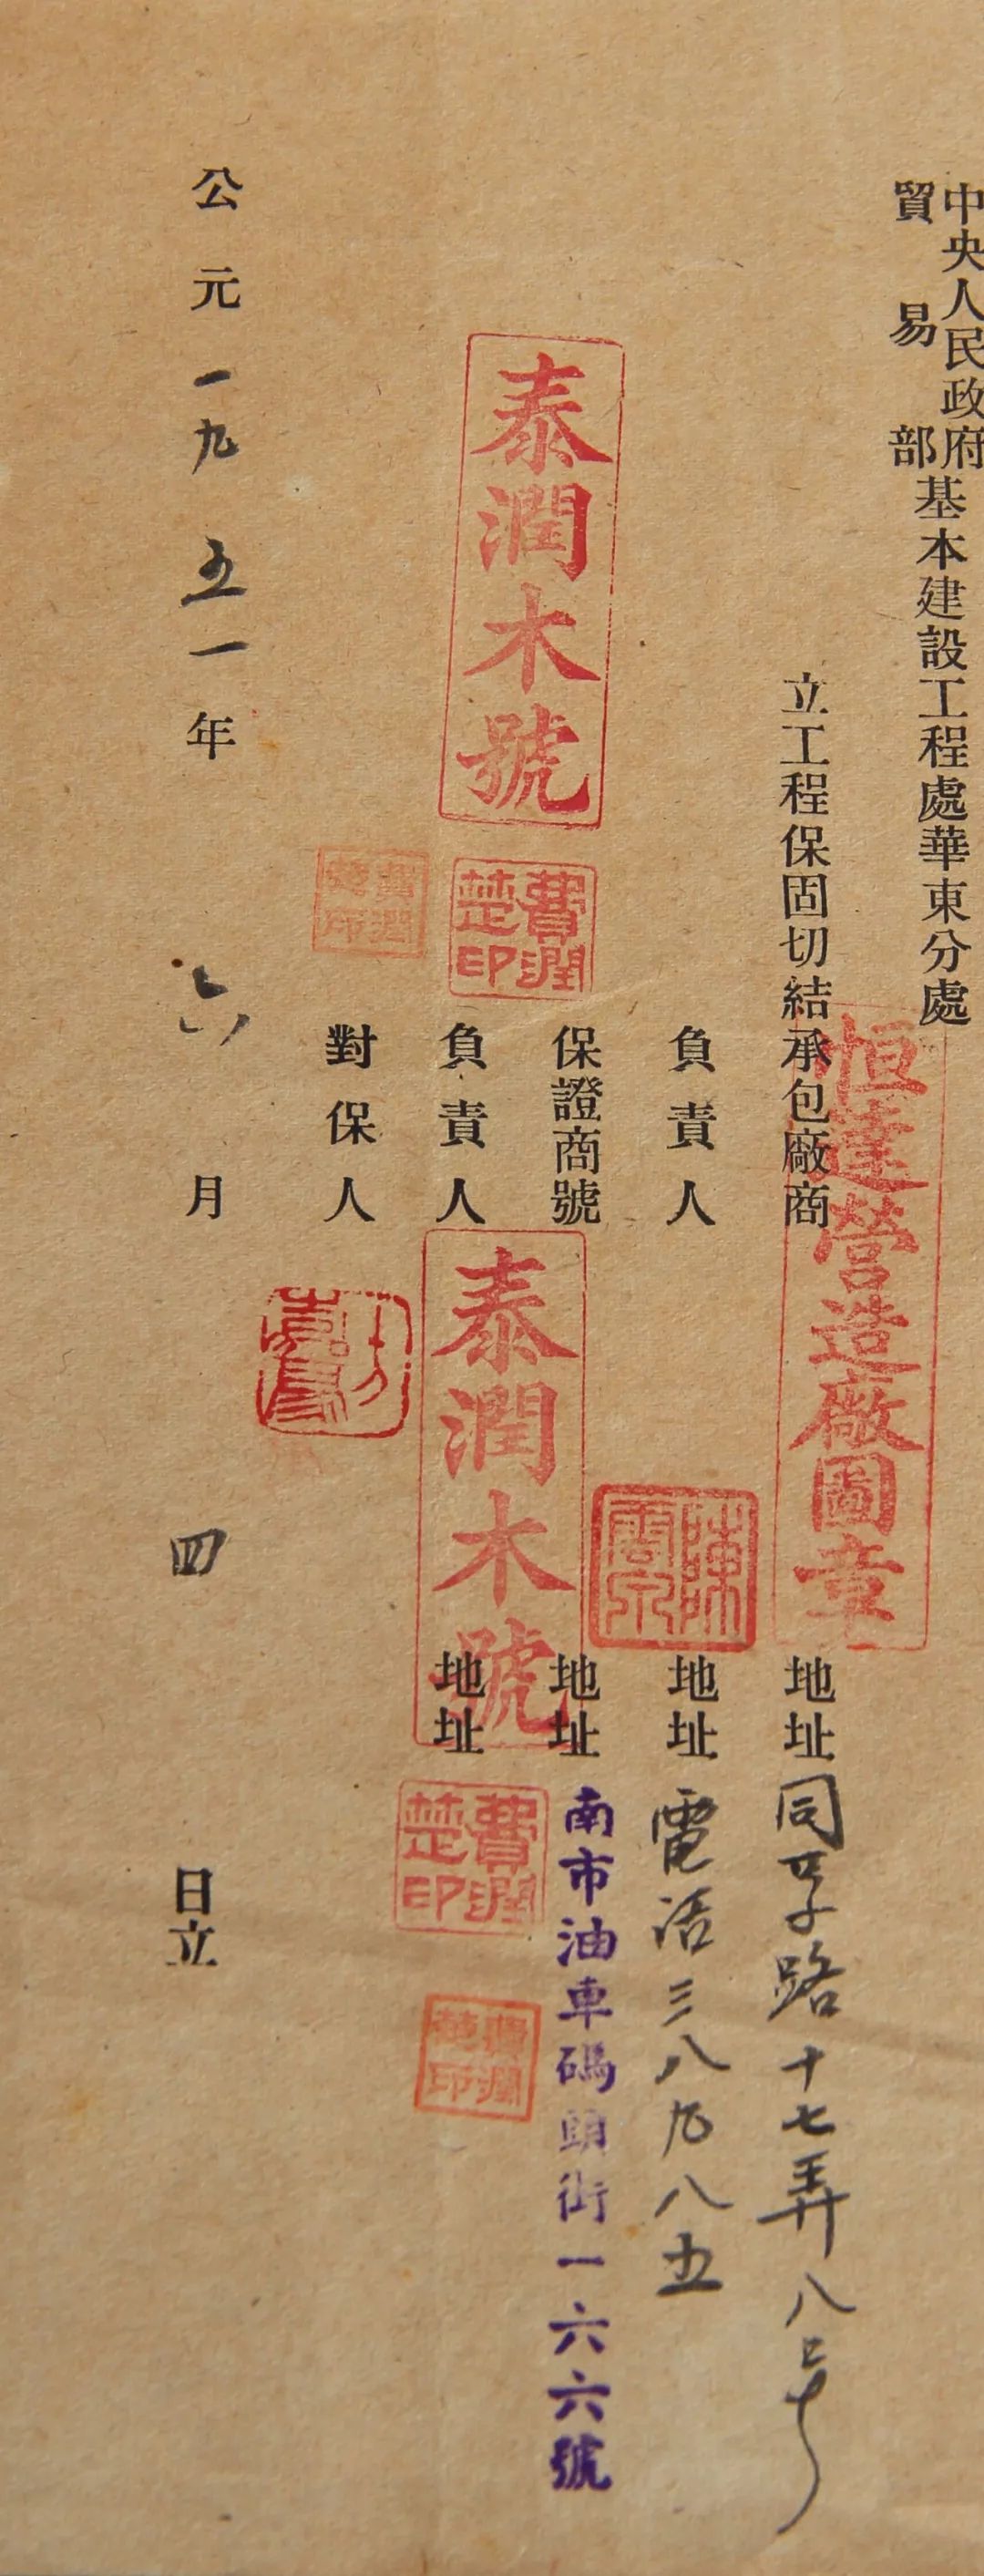 中央人民政府
貿易部
基本建設工程處華東分處
恒達營造廠圖章
立工程保固切結承包廠商
地址同孚路十七弄八号
負責人
陳
地址電話三八九八五
保證商號
地址南市油車碼頭街一六六號
泰潤木號
費潤楚印
負責人
泰潤木號
地址
費潤楚印
費潤楚印
費潤楚印
對保人
公元一九五一年六月四日立